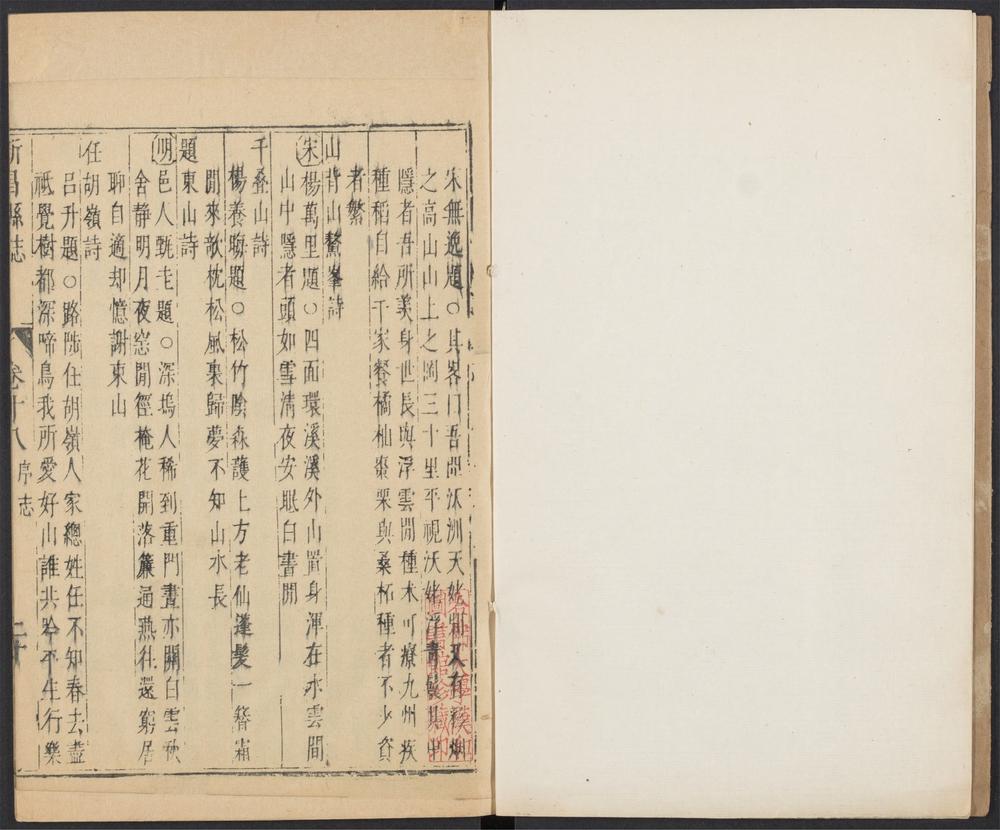 朱無逸題○其峯曰吾聞沃洲天姥間又有
之高山山上之岡三十里平視沃姥浮青其中
隱者吾所羡身世長與浮雲閒種木可療九州疾
種稻自給千家餐橘柚棗栗與桑柘種者不少貧
者繁
山背山鰲峯詩
宋楊萬里題○四面環溪溪外山置身渾在水雲間
山中隱者頭如雪清夜安眠白晝閒
千叠山詩
楊養晦題○松竹陰森護上方老仙蓬髮一簪霜
閒來欹枕松風裏歸夢不知山水長
題東山詩
明邑人甄圭題○深塢人稀到重門晝亦關白雲秋
舍静明月夜窓閒徑掩花開落簾通燕往還窮居
聊自適却憶謝東山
任胡嶺詩
吕升題○路陟任胡嶺人家總姓任不知春去盡
祇覺樹都深啼鳥我所愛好山誰共吟平生行樂
新昌縣志 卷十八 序志 二十